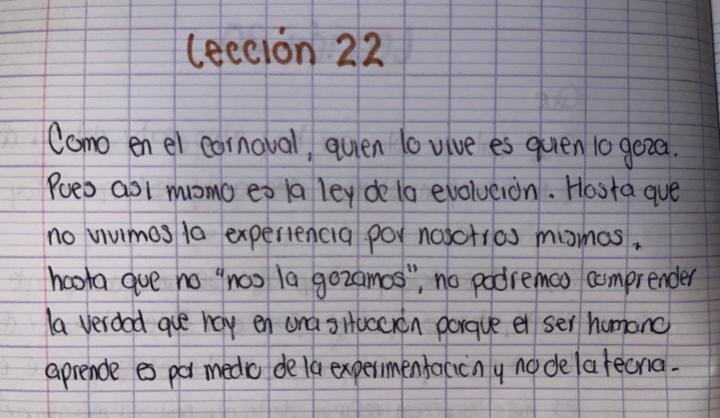 Lección 22
Como en el carnaval, quien lo vive es quien lo goza.
Pues asi mismo es la ley de la evolución. Hasta que
no vivimos la experiencia por nosotros mismos,
hasta que no "nos la gozamos", no podremos comprender
la verdad que hay en una situación porque el ser humano
aprende es por medio de la experimentación y no de la teoria.